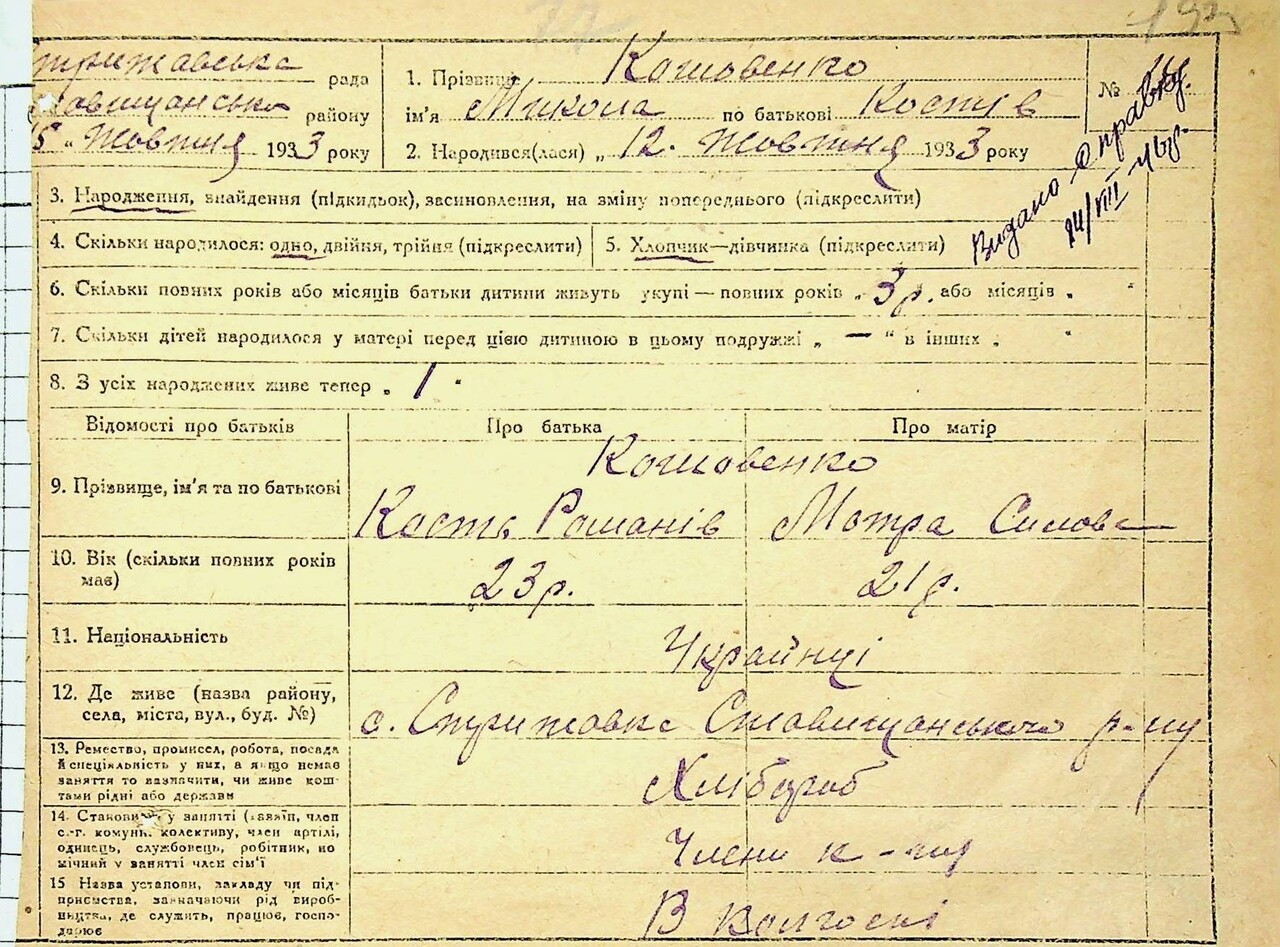 193
Стрижавська рада
Ставищанського району
15 „ жовтня 1933 року
1. Прізвище Кошовенко
ім'я Микола по батькові Костів
2. Народився(лася) „ 12. жовтня 1933 року
№
Видано справку
24/VIII 46р.
3. Народження, знайдення (підкидьок), засиновлення, на зміну попереднього (підкреслити)
4. Скільки народилося: одно, двійня, трійня (підкреслити)
5. Хлопчик—дівчинка (підкреслити)
6. Скільки повних років або місяців батьки дитини живуть укупі — повних років „ 3 р. або місяців „ "
7. Скільки дітей народилося у матері перед цією дитиною в цьому подружжі „ — " в інших „ "
8. З усіх народжених живе тепер „ 1 "
Відомості про батьків
Про батька
Про матір
9. Прізвище, ім'я та по батькові
Кошовенко
Кость Романів
Мотра Силова
10. Вік (скільки повних років
має)
23 р.
21 р.
11. Національність
Українці
12. Де живе (назва району,
села, міста, вул., буд. №)
с. Стрижавка Ставищанського р-ну
13. Ремество, промисел, робота, посада
й спеціяльність у них, а якщо немає
заняття то зазначити, чи живе кош-
тами рідні або держави
Хлібороб
14. Становище у занятті (хазяїн, член
с.-г. комуни, колективу, член артілі,
одинець, службовець, робітник, по
мічний у занятті член сім'ї
Члени к-пу
15 Назва установи, закладу чи під-
приємства, зазначаючи рід вироб-
ництва, де служить, працює, госпо-
дарює
В колгоспі